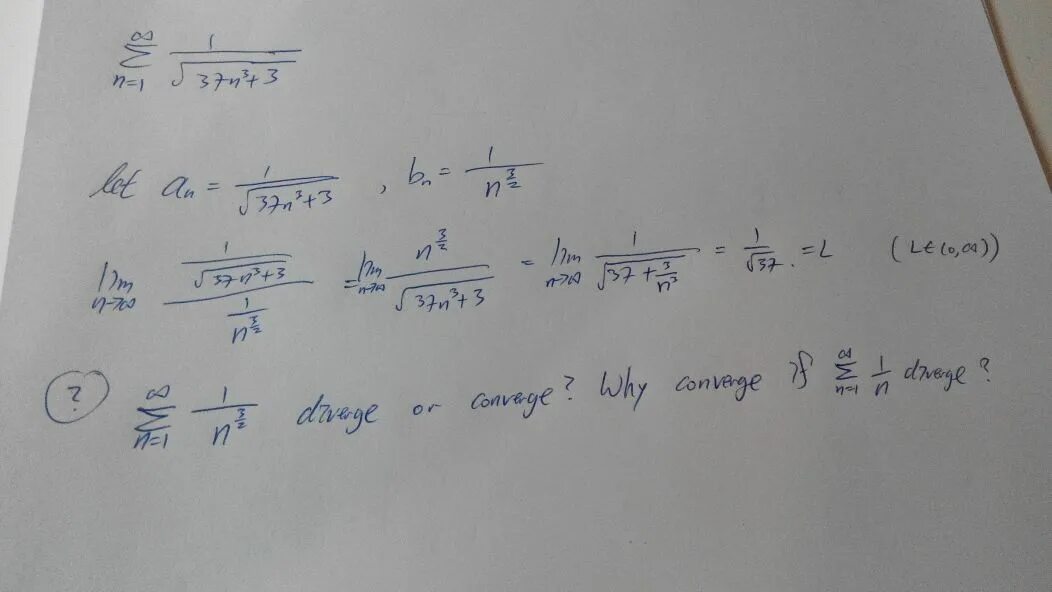 ∞∑n=1 1/√(37n³+3)
let aₙ = 1/√(37n³+3) , bₙ = 1/n^(3/2)
lim n→∞ (1/√(37n³+3))/(1/n^(3/2)) = lim n→∞ n^(3/2)/√(37n³+3) = lim n→∞ 1/√(37+3/n³) = 1/√37. = L (L∈(0,∞))
? ∞∑n=1 1/n^(3/2) diverge or converge? Why converge if ∞∑n=1 1/n diverge?